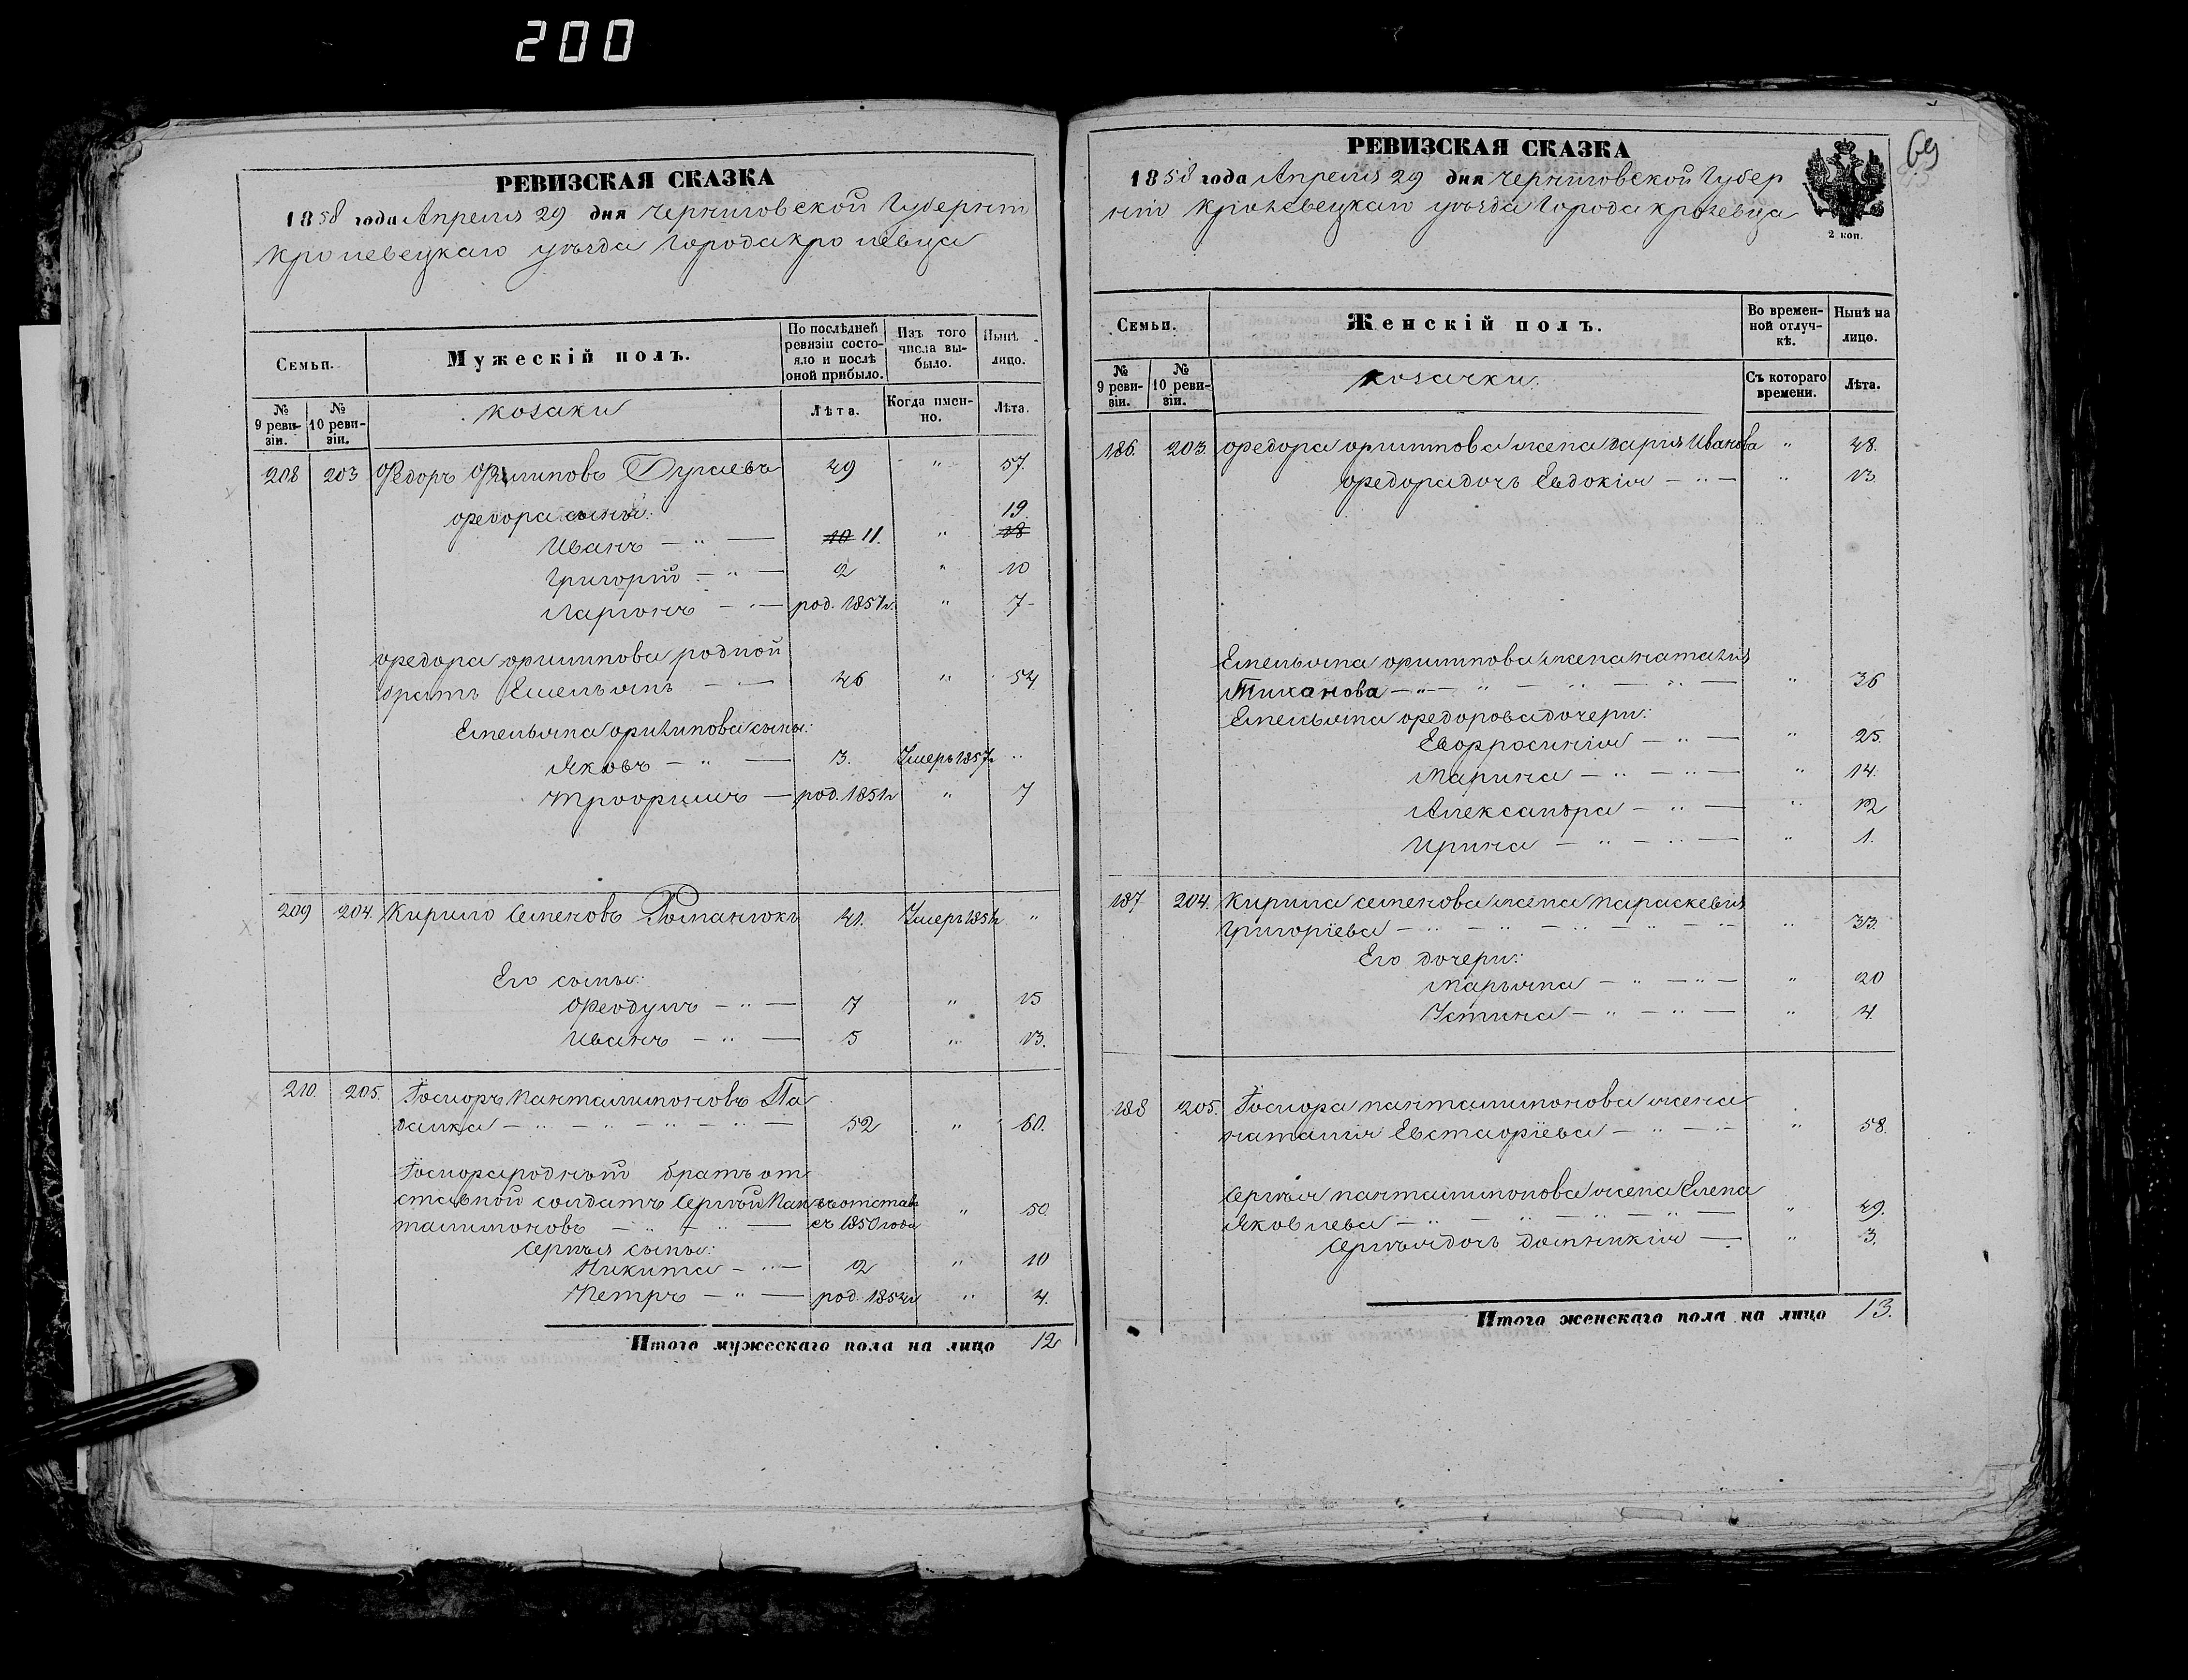 200
РЕВИЗСКАЯ СКАЗКА
1858 года Апреля 29 дня Черниговской Губернiи
Кролевецкаго уѣзда Города Кролевца
Семьи.
Мужескій полъ.
По послѣдней ревизіи состояло и послѣ оной прибыло.
Изъ того числа выбыло.
Нынѣ лицо.
№ 9 ревизіи.
№ 10 ревизіи.
козаки
Лѣта.
Когда именно.
Лѣта.
208 203 Федоръ Филиповъ 49 " 57.
Федора сыны:
19.
Иванъ — " — 10 11. " 18
Григорій — " — 2 " 10
Ларіонъ — " — род. 1851г. " 7
Федора Филипова родной
братъ Емельянъ — " — 46 " 54
Емельяна Филипова сыны:
Яковъ — " — 3. Умеръ 1857г "
Трофимъ — род. 1851г " 7
209 204. Кирило Семеновъ Романюкъ 41. Умеръ 1851г "
Его сыны:
Феодулъ — " — 7 " 15
Иванъ — " — 5 " 13.
210. 205. Іосифъ Панталимоновъ Па
далка — " — " — " — " — 52 " 60.
Іосифа родный братъ от
ставной солдатъ Сергѣй Пан въ отстав
талимоновъ — " — " — съ 1850 года " 50.
Сергѣя сыны:
Никита — " — 2 " 10
Петръ — " — род. 1854г " 4.
Итого мужескаго пола на лицо 12
69
РЕВИЗСКАЯ СКАЗКА
1858 года Апреля 29 дня Черниговской Губер
нiи Кролевецкаго уѣзда Города Кролевца
2 коп.
Семьи.
Женскій полъ.
Во временной отлучкѣ.
Нынѣ на лицо.
№ 9 ревизіи.
№ 10 ревизіи.
козачки.
Съ котораго времени.
Лѣта.
186. 203. Федора Филипова жена Дарія Иванова " 48.
Федора дочь Евдокія — " — " 13.
Емельяна Филипова жена Наталія
Тиханова — " — " — " — " — " 36
Емельяна Федорова дочери:
Евфросинія — " — " 25.
Марина — " — " — " 14.
Александра — " — " 12
Ирина — " — " — " 1.
187 204. Кирила Семенова жена Параскевія
Григоріева — " — " — " — " — " — " 33.
Его дочери:
Марьяна — " — " — " 20
Устина — " — " — " 4.
188 205. Іосифа Панталимонова жена
Наталія Евстафіева — " — " — " 58.
Сергѣя Панталимонова жена Елена
Яковлева — " — " — " — " — " 49.
Сергѣя дочь Домникія — " 3.
Итого женскаго пола на лицо 13.